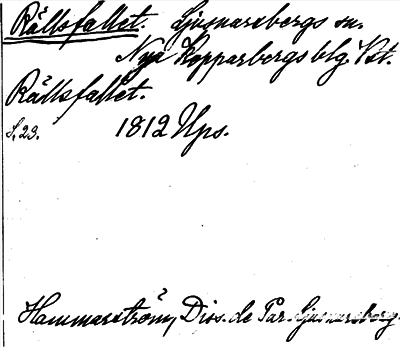 Rällsfallet. Ljusnarsbergs sn.
Nya Kopparbergs blg. Vst.
Rällsfallet.
S. 23. 1812 Ups.
Hammarström, Diss. de Par. Ljusnarsberg.